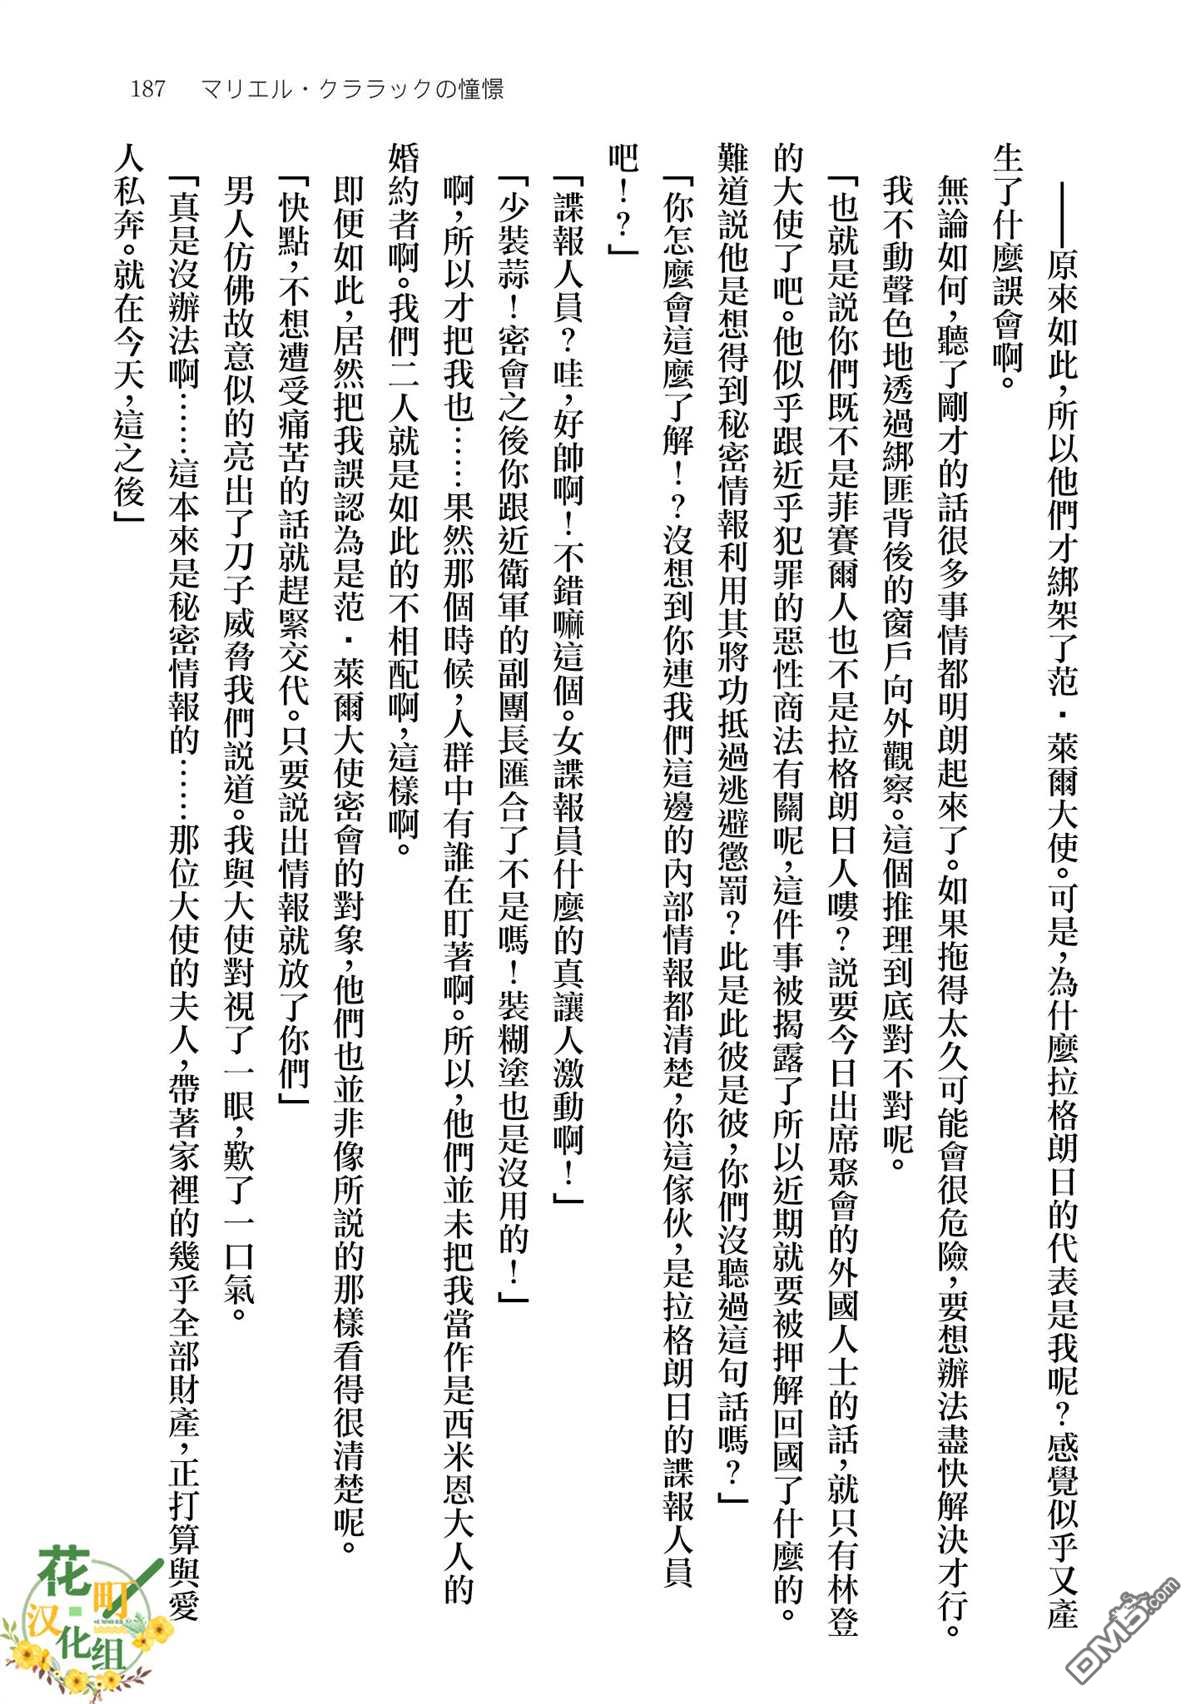 187　マリエル・クララックの憧憬
——原來如此，所以他們才綁架了范・萊爾大使。可是，為什麼拉格朗日的代表是我呢？感覺似乎又產
生了什麼誤會啊。
無論如何，聽了剛才的話很多事情都明朗起來了。如果拖得太久可能會很危險，要想辦法盡快解決才行。
我不動聲色地透過綁匪背後的窗戶向外觀察。這個推理到底對不對呢。
「也就是説你們既不是菲賽爾人也不是拉格朗日人嘍？説要今日出席聚會的外國人士的話，就只有林登
的大使了吧。他似乎跟近乎犯罪的惡性商法有關呢，這件事被揭露了所以近期就要被押解回國了什麼的。
難道説他是想得到秘密情報利用其將功抵過逃避懲罰？此是此彼是彼，你們沒聽過這句話嗎？」
「你怎麼會這麼了解！？沒想到你連我們這邊的內部情報都清楚，你這傢伙，是拉格朗日的諜報人員
吧！？」
「諜報人員？哇，好帥啊！不錯嘛這個。女諜報員什麼的真讓人激動啊！」
「少裝蒜！密會之後你跟近衛軍的副團長匯合了不是嗎！裝糊塗也是沒用的！」
啊，所以才把我也……果然那個時候，人群中有誰在盯著啊。所以，他們並未把我當作是西米恩大人的
婚約者啊。我們二人就是如此的不相配啊，這樣啊。
即便如此，居然把我誤認為是范・萊爾大使密會的對象，他們也並非像所説的那樣看得很清楚呢。
「快點，不想遭受痛苦的話就趕緊交代。只要説出情報就放了你們」
男人仿佛故意似的亮出了刀子威脅我們説道。我與大使對視了一眼，歎了一口氣。
「真是沒辦法啊……這本來是秘密情報的……那位大使的夫人，帶著家裡的幾乎全部財產，正打算與愛
人私奔。就在今天，這之後」
花町
汉化组
DM5.com